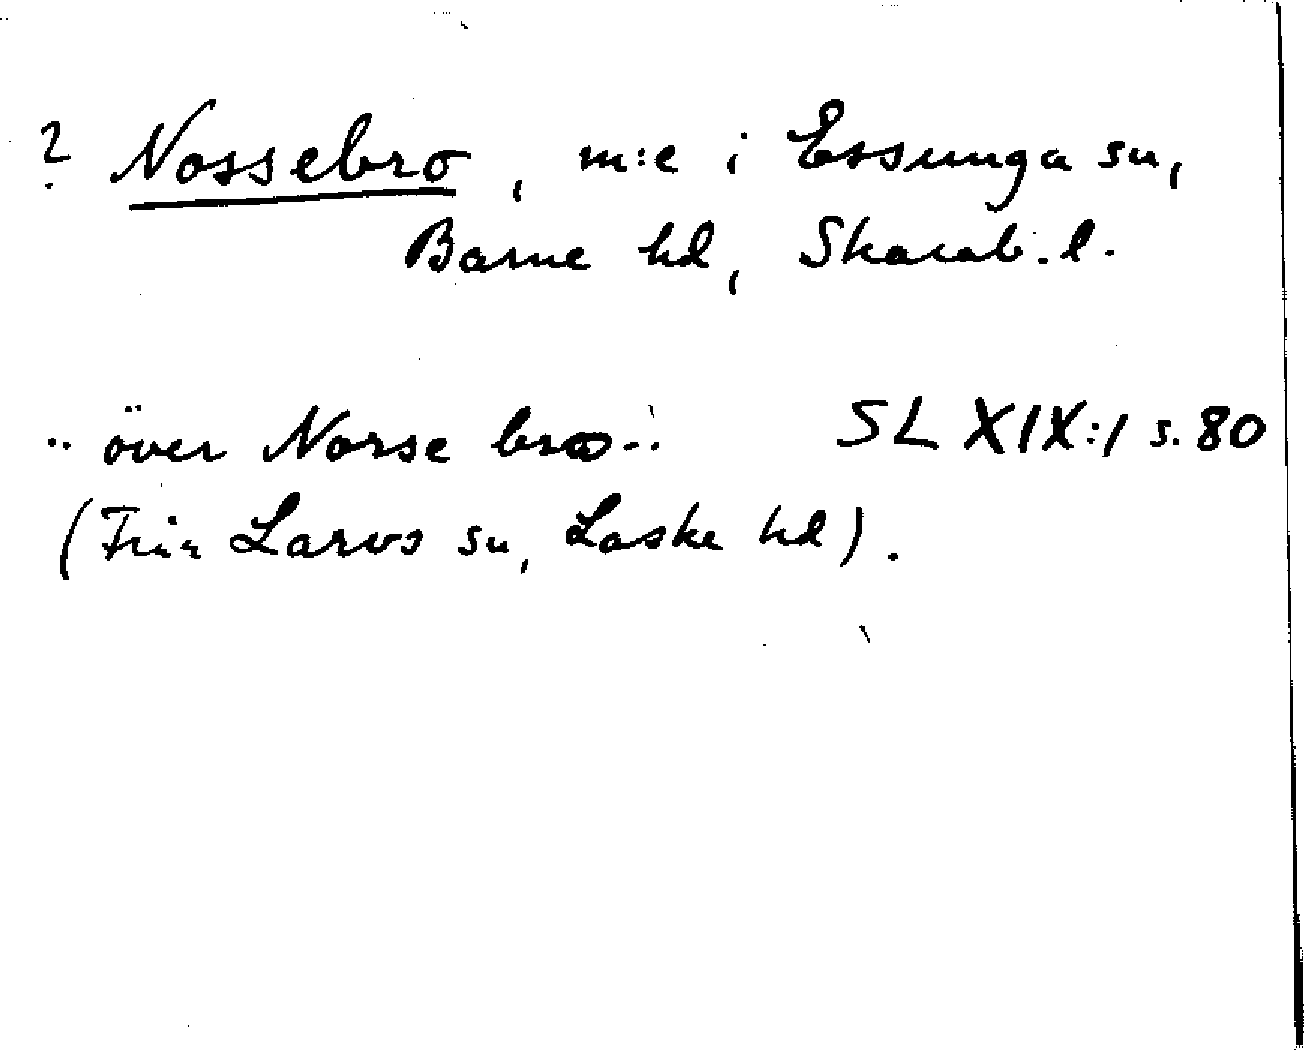 ? Nossebro, m:e i Essunga sn,
Barne hd, Skarab. l.
.. över Norse bro .. SL XIX:1 s. 80
(Från Larvs sn, Laske hd).